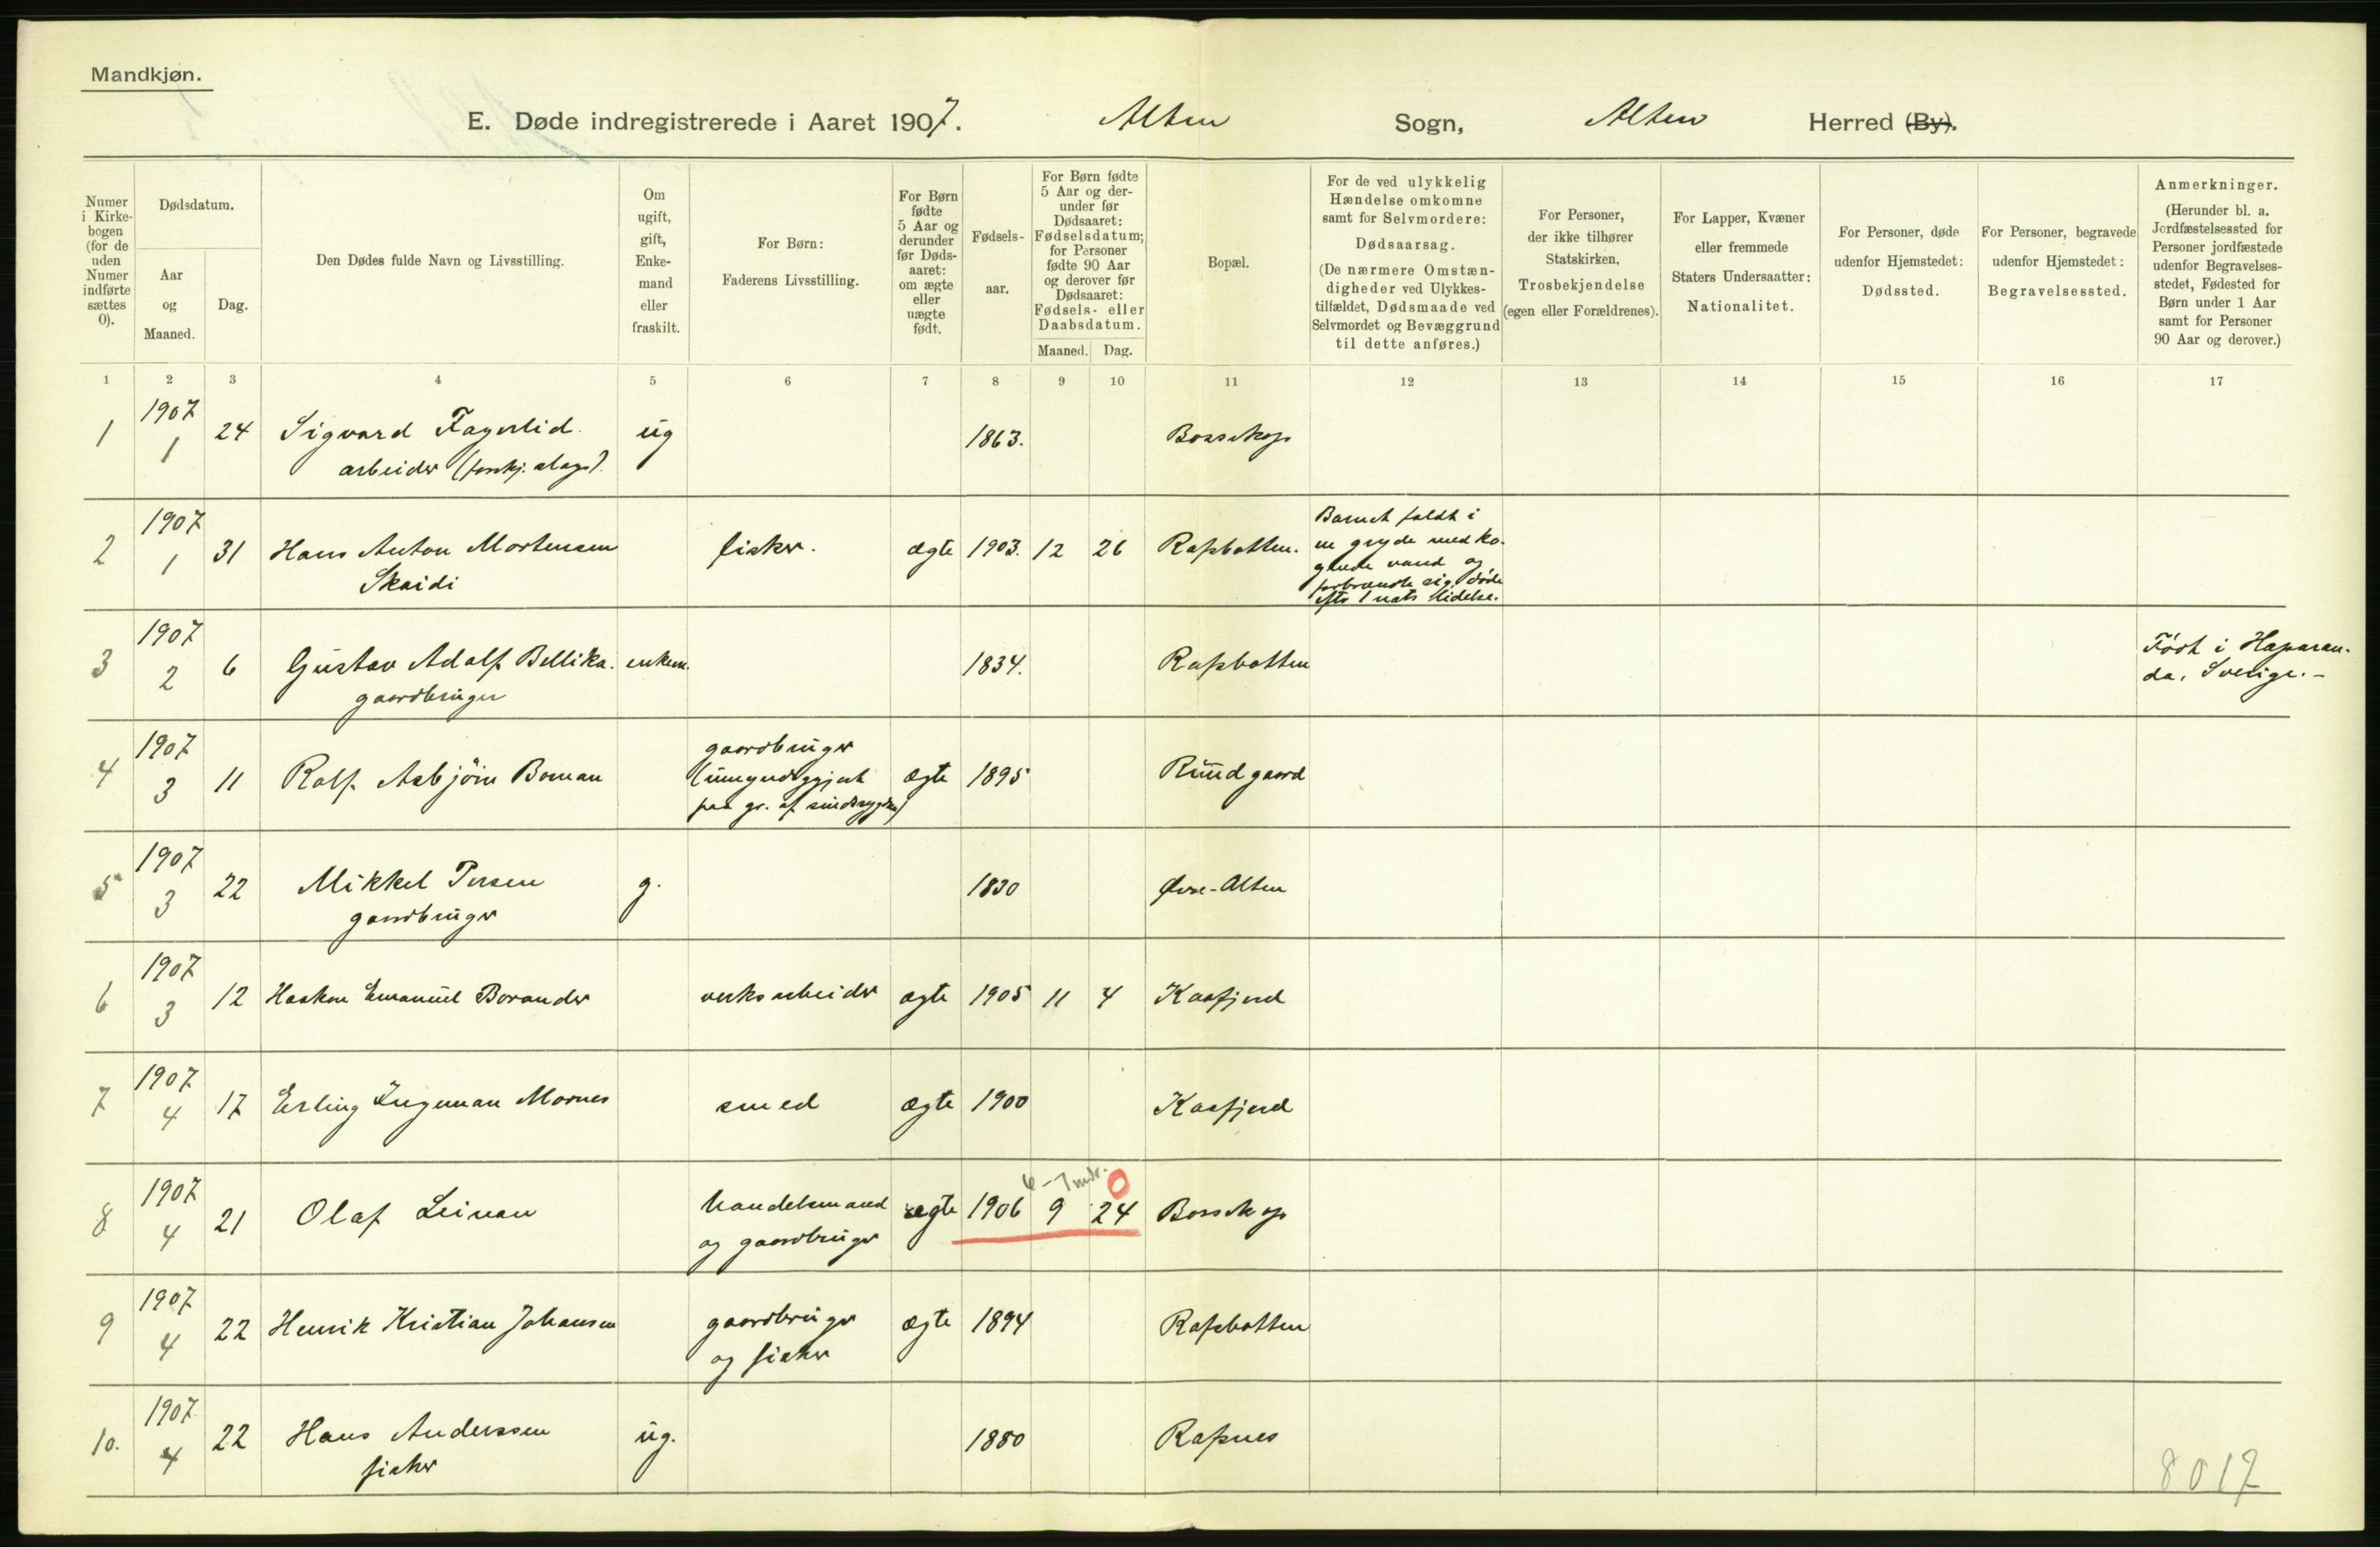 Mandkjøn.
E. Døde indregistrerede i Aaret 1907. Alten Sogn, Alten Herred (By).
Numer i Kirkebogen (for de uden Numer indførte sættes 0).
Dødsdatum.
Aar og Maaned.
Dag.
Den Dødes fulde Navn og Livsstilling.
Om ugift, gift, Enkemand eller fraskilt.
For Børn:
Faderens Livsstilling.
For Børn fødte 5 Aar og derunder før Dødsaaret: om ægte eller uægte født.
Fødselsaar.
For Børn fødte 5 Aar og derunder før Dødsaaret: Fødselsdatum; for Personer fødte 90 Aar og derover før Dødsaaret: Fødsels- eller Daabsdatum.
Maaned. Dag.
Bopæl.
For de ved ulykkelig Hændelse omkomne samt for Selvmordere:
Dødsaarsag.
(De nærmere Omstændigheder ved Ulykkestilfældet, Dødsmaade ved Selvmordet og Bevæggrund til dette anføres.)
For Personer, der ikke tilhører Statskirken,
Trosbekjendelse
(egen eller Forældrenes).
For Lapper, Kvæner eller fremmede Staters Undersaatter:
Nationalitet.
For Personer, døde udenfor Hjemstedet:
Dødssted.
For Personer, begravede udenfor Hjemstedet:
Begravelsessted.
Anmerkninger.
(Herunder bl. a. Jordfæstelsessted for Personer jordfæstede udenfor Begravelsesstedet, Fødested for Børn under 1 Aar samt for Personer 90 Aar og derover.)
1 2 3 4 5 6 7 8 9 10 11 12 13 14 15 16 17
1 1907 1 24 Sigvard Fagerlid. ug 1863. Bossekop
arbeider (forskj. slags).
2 1907 1 31 Hans Anton Mortensen fisker. ægte 1903. 12 26 Rafsbotten.
Skaidi
Barnet faldt i
en gryde med ko-
gende vand og
forbrændte sig, døde
efter 1 nats lidelse.
3 1907 2 6 Gustav Adolf Bellika. enkem. 1834. Rafsbotten
gaardbruger
Föst i Haparan-
da, Sverige. -
4 1907 3 11 Rolf Asbjörn Boman gaardbruger ægte 1895 Rundgaard
(umyndiggjort
paa gr. af sindssygdom)
5 1907 3 22 Mikkel Persen g. 1830 Øvre-Alten
gaardbruger
6 1907 3 12 Haakon Emanuel Borander verksarbeider ægte 1905 11 4 Kaafjord
7 1907 4 17 Erling Ingeman Mornes smed ægte 1900 Kaafjord
6-7 mdr. 0
8 1907 4 21 Olaf Leinan handelsmand ægte 1906 9 24 Bossekop
og gaardbruger
9 1907 4 22 Henrik Kristian Johansen gaardbruger ægte 1894 Rafsbotten
og fisker
10. 1907 4 22 Hans Anderssen ug. 1880 Rafsnes
fisker
8017